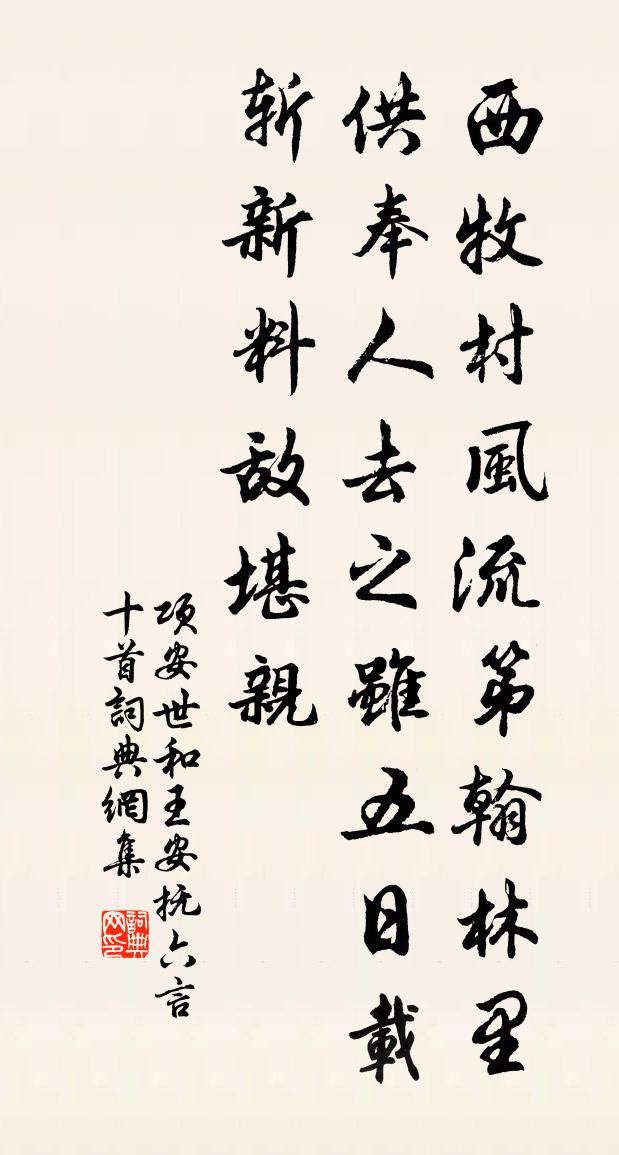 西牧村風流第翰林里
供奉人去之雖五日載
斬新料敌堪親
项安世和王安抚六言
十首詞典網集
詞典網印